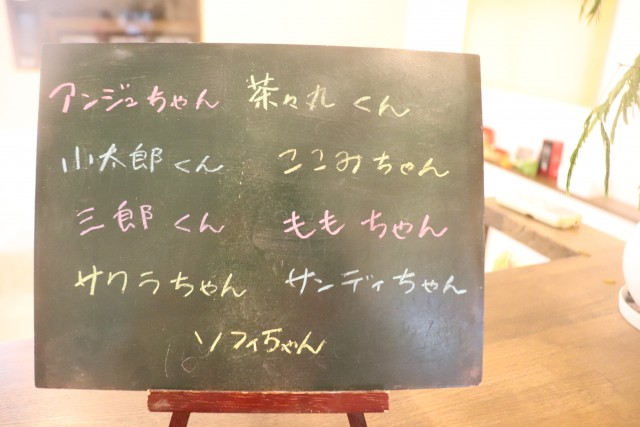 アンジュちゃん 茶々丸くん
小太郎くん ここみちゃん
三郎くん ももちゃん
サクラちゃん サンディちゃん
ソフィちゃん